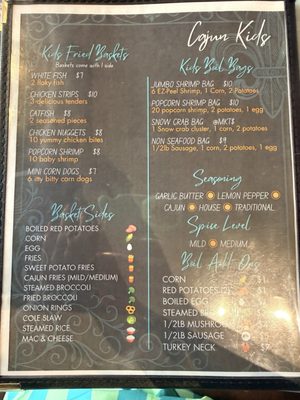 Cajun Kids
Kids Fried Baskets
Baskets come with 1 side
WHITE FISH $7
2 flaky fish
CHICKEN STRIPS $10
3 delicious tenders
CATFISH $8
2 seasoned pieces
CHICKEN NUGGETS $8
10 yummy chicken bites
POPCORN SHRIMP $8
10 baby shrimp
MINI CORN DOGS $7
6 itty bitty corn dogs
Basket Sides
BOILED RED POTATOES
CORN
EGG
FRIES
SWEET POTATO FRIES
CAJUN FRIES (MILD/MEDIUM)
STEAMED BROCCOLI
FRIED BROCCOLI
ONION RINGS
COLE SLAW
STEAMED RICE
MAC & CHEESE
Kids Boil Bags
JUMBO SHRIMP BAG $10
6 EZ-Peel Shrimp, 1 Corn, 2 Potatoes
POPCORN SHRIMP BAG $10
20 popcorn shrimp, 2 potatoes, 1 egg
SNOW CRAB BAG @MKT$
1 Snow crab cluster, 1 corn, 2 potatoes
NON SEAFOOD BAG $9
1/2lb Sausage, 1 corn, 2 potatoes, 1 egg
Seasoning
GARLIC BUTTER LEMON PEPPER
CAJUN HOUSE TRADITIONAL
Spice Level
MILD MEDIUM
Boil Add Ons
CORN $1
RED POTATOES
BOILED EGG
STEAMED
1/2LB MUSHROOM
1/2LB SAUSAGE
TURKEY NECK